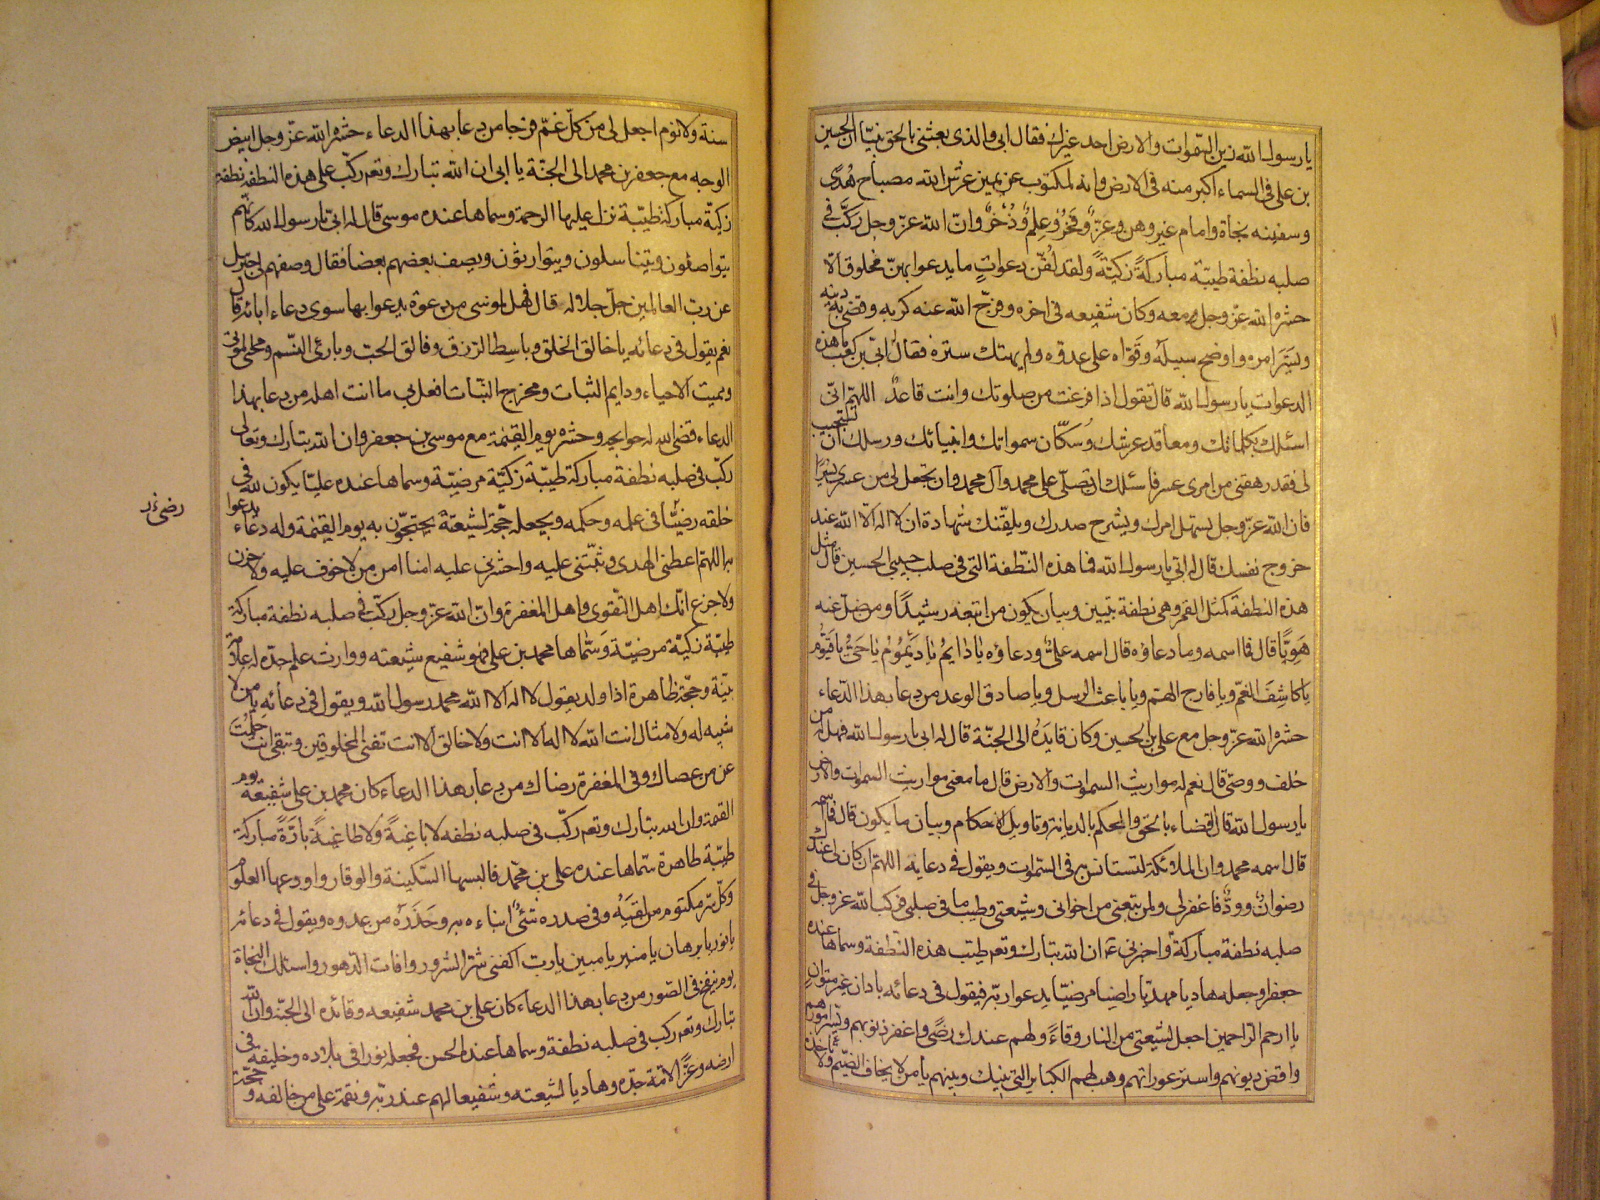 يا رسول الله زين السموات والارض احد غيرك فقال ابي والذي بعثني بالحق نبيّا ان الحسين
بن علي في السماء اكبر منه في الارض وانه لمكتوب عن يمين عرش الله مصباح هُدًى
وسفينه نجاة وامام غير وهن وعزّ وفخرٌ وعلمٌ وذُخرٌ وانّ الله عزّ وجل ركّب في
صلبه نطفة طيبّة مباركةً زكيّةً ولقد لُقّن دعواتٍ ما يدعوا بهنّ مخلوق الّا
حشره الله عزّ وجل معه وكان شفيعه في اخره وفرّج الله عنه كربه وقضى بها دينه
ويسّر امره واوضح سبيله وقوّاه على عدوّه ولم يهتك ستره فقال ابيّ بن كعب ما هذه
الدعوات يا رسول الله قال تقول اذا فرغت من صلوتك وانت قاعدٌ اللهم انّي
اسئلك بكلماتك ومعاقد عرشك وسكّان سمواتك وانبيائك ورسلك ان تستجيب
لي فقد رهقني من امري عسر فاسئلك ان تصلّي على محمد وآل محمد وان تجعل لي من عسري يسرًا
فان الله عزّ وجل يسهل امرك ويشرح صدرك ويلقّنك شهادة ان لا اله الّا الله عند
خروج نفسك قال له ابي يا رسول الله فما هذه النّطفة التي في صلب حبيبي الحسين قال مثل
هذه النطفة كمثل القمر وهي نطفة تبيين وبيان يكون من اتبعه رشيدًا ومن ضلّ عنه
هَوِيًّا قال فما اسمه وما دعاؤه قال اسمه عليٌّ ودعاؤه يا دايمُ يا ديمُومُ يا حيُّ يا قيّوم
يا كاشِفَ الغمّ ويا فارج الهمّ ويا باعث الرسل ويا صادق الوعد من دعا بهذا الدّعاء
حشره الله عزّ وجل مع علي بن الحسين وكان قايدَهُ الى الجنّة قال له ابي يا رسول الله فهل له من
خلف ووصيّ قال نعم له مواريث السموات والارض قال ما معنى مواريث السموات والارض
يا رسول الله قال القضاء بالحق والحكم بالديانة وتاويل الاحكام وبيان ما يكون قال فما اسمه
قال اسمه محمد وان الملائكة لتستانس به في السّموات ويقول في دعايه اللهمّ ان كان لي عندك
رضوانٌ وودٌّ فاغفر لي ولمن تبعني من اخواني وشيعتي وطيب ما في صلبي فركب الله عزّ وجل في
صلبه نطفة مباركةً واخبرني ان الله تبارك وتعم طيّب هذه النّطفة وسماها عنده
جعفر وجعله هاديا مهديّا راضيا مرضيّا يدعوا ربّه فيقول في دعائه يا دان غير متوان
يا ارحم الرّاحمين اجعل لشيعتي من النار وقاءً ولهم عندك رضًى واغفر ذنوبهم ويسّر امورهم
واقض ديونهم واستر عوراتهم وهب لهم الكباير التي بينك وبينهم يا من لا يخاف الضيّم ولا تاخذه
سنة ولا نوم اجعل لي من كلّ غمّ فرجا من دعا بهذا الدعاء حشره الله عزّ وجل ابيض
الوجه مع جعفر بن محمد الى الجنّة يا ابي ان الله تبارك وتعم ركّب على هذه النطفة نطفة
زكيّة مباركة طيّبة نزل عليها الرحمة وسماها عنده موسى قال له ابي يا رسول الله كانّهم
يتواصلون ويتناسلون ويتوارثون ويصف بعضهم بعضا فقال وصفهم لي جبرئيل
عن ربّ العالمين جلّ جلاله قال فهل لموسى من دعوة يدعوا بها سوى دعاء ابائه قال
نعم يقول في دعائه يا خالق الخلق ويا باسط الرّزق وفالق الحبّ وبارئ النّسم ومحيي الموتى
ومميت الاحياء ودايم الثبات ومخرج النّبات افعل بي ما انت اهله من دعا بهذا
الدعاء قضى الله له حوايجه وحشره يوم القيمة مع موسى بن جعفر وان الله تبارك وتعالى
ركّب في صلبه نطفة مباركة طيّبة زكيّة مرضيّة وسماها عنده عليّا يكون لله في
خلقه رضيًّا في علمه وحكمه ويجعله حجّة لشيعته يحتجّون به يوم القيمة وله دعاء يدعوا
به اللهمّ اعطني الهدى وثبّتني عليه واحشرني عليه امنا امن من لا خوف عليه ولا حزن
ولا جزع انّك اهل التّقوى واهل المغفرة وانّ الله عزّ وجل ركّب في صلبه نطفة مباركة
طيّبة زكيّة مرضيّة وسَمّاها محمد بن علي فهو شفيع شيعته ووارث علم جدّه له علامة
بيّنة وحجّة ظاهرة اذا ولد يقول لا اله الا الله محمد رسول الله ويقول في دعائه يا من لا
شبيه له ولا مثال انت الله لا اله الا انت ولا خالق الا انت تفني المخلوقين وتبقى انت حلمت
عن من عصاك وفي المغفرة رضاك من دعا بهذا الدعاء كان محمد بن علي شفيعه يوم
القيمة وان الله تبارك وتعم ركّب في صلبه نطفه لا باغيةً ولا طاغيةً بارّةً مباركة
طيّبة طاهرة سمّاها عنده علي بن محمّد فالبسها السّكينة والوقار واودعها العلوم
وكلّ سرّ مكتوم من لقيَهُ وفي صدره شئٌ انباءه به وحَذّرَه من عدوه ويقول في دعائه
يا نور يا برهان يا منير يا مبين يا ربّ اكفني شرّ الشرور وافات الدّهور واسئلك النجاة
يوم ينفخ في الصّور من دعا بهذا الدعاء كان علي بن محمد شفيعه وقائده الى الجنّة وان الله
تبارك وتعم ركب في صلبه نطفة وسماها عنده الحسن فجعله نورا في بلاده وخليفة في
ارضه وعزًّا لامّة جدّه وهاديا لشيعته وشفيعا لهم عند ربّه ونقمة على من خالفه وحجّة